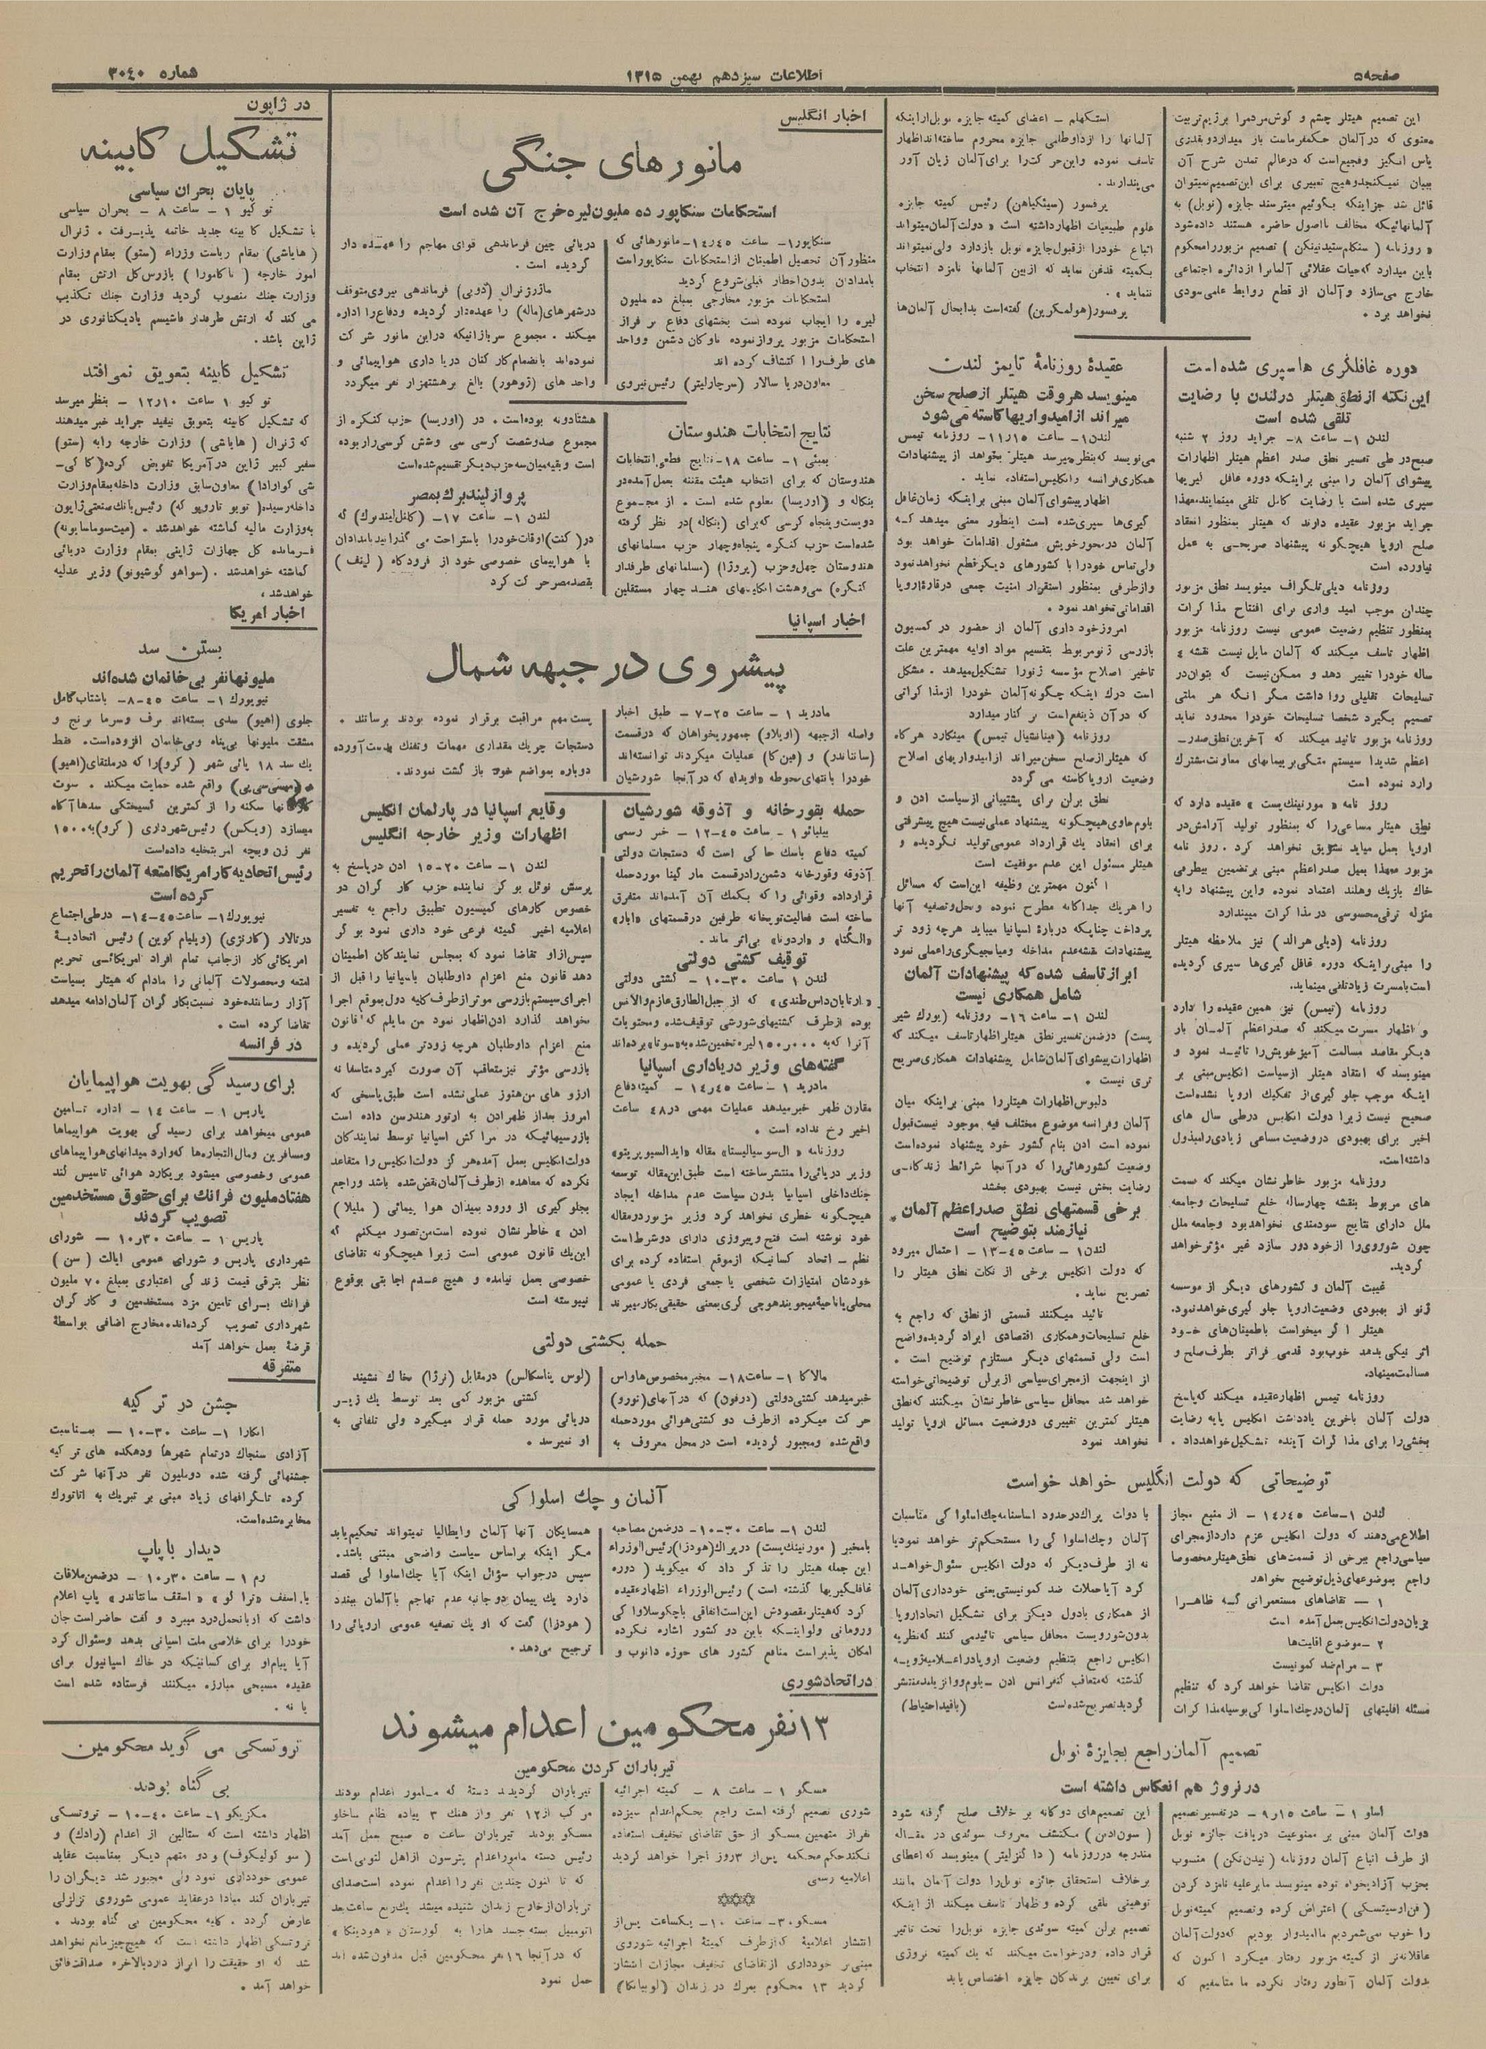 صفحه۵
اطلاعات سیزدهم بهمن ۱۳۱۵
شماره ۳۰۴۰
این تصمیم هیتلر چشم و گوش مردم را برژیم تربیت
معنوی که در آلمان حکمفرماست باز میدارد و بقدری
یاس انگیز و فجیع است که در عالم تمدن شرح آن
ببیان نمیگنجد و هیچ تعبیری برای این تصمیم نمیتوان
قائل شد جز اینکه بگوئیم میترسند جایزه (نوبل) به
آلمانهائیکه مخالف با اصول حاضره هستند داده شود
باین میدارد که حیات عقلائی آلمان را از دائره اجتماعی
خارج می‌سازد و آلمان از قطع روابط علمی سودی
نخواهد برد .
استکهلم - اعضای کمیته جایزه نوبل از اینکه
آلمانها را از داوطلبی جایزه محروم ساخته‌اند اظهار
تاسف نموده و این حرکت را برای آلمان زیان آور
می‌پندارند .
پرفسور (سیگباهن) رئیس کمیته جایزه
علوم طبیعیات اظهار داشته است « دولت آلمان میتواند
اتباع خود را از قبول جایزه نوبل بازدارد ولی نمیتواند
بکمیته قدغن نماید که از بین آلمانها نامزد انتخاب
ننماید » .
پرفسور (هولمگرین) گفته است بدا بحال آلمان‌ها
دوره غافلگری ها سپری شده است
این نکته از نطق هیتلر در لندن با رضایت
تلقی شده است
لندن ۱- ساعت ۸- جراید روز ۲ شنبه
صبح در طی تفسیر نطق صدر اعظم هیتلر اظهارات
پیشوای آلمان را مبنی بر اینکه دوره غافل گیریها
سپری شده است با رضایت کامل تلقی مینمایند معهذا
جراید مزبور عقیده دارند که هیتلر بمنظور انعقاد
صلح اروپا هیچگونه پیشنهاد صریحی به عمل
نیاورده است
روزنامه دیلی تلگراف مینویسد نطق مزبور
چندان موجب امید واری برای افتتاح مذاکرات
بمنظور تنظیم وضعیت عمومی نیست روزنامه مزبور
اظهار تاسف میکند که آلمان مایل نیست نقشه ٤
ساله خود را تغییر دهد و ممکن نیست که بتوان در
تسلیحات تقلیلی روا داشت مگر آنکه هر ملتی
تصمیم بگیرد شخصا تسلیحات خود را محدود نماید
روزنامه مزبور تائید میکند که آخرین نطق صدر-
اعظم شدیدا سیستم متکی بر پیمانهای معاونت مشترک
را رد نموده است
روز نامه « مورنینگ پست » عقیده دارد که
نطق هیتلر مساعی را که بمنظور تولید آرامش در
اروپا بعمل میاید تشویق نخواهد کرد . روز نامه
مزبور معهذا بعمل صدر اعظم مبنی بر تضمین بیطرفی
خاک بلژیک و هلند اعتماد نموده و این پیشنهاد را به
منزله ترقی محسوسی در مذاکرات میپندارد
روزنامه (دیلی هرالد) نیز ملاحظه هیتلر
را مبنی بر اینکه دوره غافل گیری‌ها سپری گردیده
است با مسرت زیاد تلقی مینماید .
روزنامه (تیمس) نیز همین عقیده را دارد
و اظهار مسرت میکند که صدر اعظم آلمان بار
دیگر مقاصد مسالمت آمیز خویش را تائید نمود و
مینویسد که انتقاد هیتلر از سیاست انگلیس مبنی بر
اینکه موجب جلو گیری از تفکیک اروپا نشده است
صحیح نیست زیرا دولت انگلیس در طی سال های
اخیر برای بهبودی در وضعیت مساعی زیادی را مبذول
داشته است .
روزنامه مزبور خاطر نشان میکند که صمت
های مربوط بنقشه چهار ساله خلع تسلیحات و جامعه
ملل دارای نتایج سودمندی نخواهد بود و جامعه ملل
چون شوروی را از خود دور سازد غیر مؤثر خواهد
گردید .
غیبت آلمان و کشورهای دیگر از موسسه
ژنو از بهبودی وضعیت اروپا جلو گیری خواهد نمود .
هیتلر اگر میخواست باطمینان‌های خود
اثر نیکی بدهد خوب بود قدمی فراتر بطرف صلح و
مسالمت مینهاد .
روزنامه تیمس اظهار عقیده میکند که پاسخ
دولت آلمان بآخرین یادداشت انگلیس پایه رضایت
بخشی را برای مذاکرات آینده تشکیل خواهد داد .
عقیدهٔ روزنامهٔ تایمز لندن
مینویسد هر وقت هیتلر از صلح سخن
میراند از امیدواریها کاسته میشود
لندن ۱- ساعت ۱۱٫۱۵- روزنامه تیمس
می‌نویسد که بنظر میرسد هیتلر بخواهد از پیشنهادات
همکاری فرانسه و انگلیس استفاده نماید .
اظهار پیشوای آلمان مبنی بر اینکه زمان غافل
گیری‌ها سپری شده است اینطور معنی میدهد که
آلمان در محور خویش مشغول اقدامات خواهد بود
ولی تماس خود را با کشورهای دیگر قطع نخواهد نمود
و از طرفی بمنظور استقرار امنیت جمعی در قارهٔ اروپا
اقداماتی نخواهد نمود .
امروز خودداری آلمان از حضور در کمسیون
بازرسی ژنو مربوط بتقسیم مواد اولیه مهمترین علت
تاخیر اصلاح مؤسسه ژنو را تشکیل میدهد . مشکل
است درک اینکه چگونه آلمان خود را از مذاکراتی
که در آن ذینفع است بر کنار میدارد
روزنامه (فینانشیال تیمس) مینگارد هر گاه
که هیتلر از صلح سخن میراند از امیدواریهای اصلاح
وضعیت اروپا کاسته می گردد
نطق برلن برای پشتیبانی از سیاست ادن و
بلوم حاوی هیچگونه پیشنهاد عملی نیست هیچ پیشرفتی
برای انعقاد یک قرارداد عمومی تولید ننگردیده و
هیتلر مسئول این عدم موفقیت است
اکنون مهمترین وظیفه این است که مسائل
را هر یک جداگانه مطرح نموده و بحل و تصفیه آنها
پرداخت چنانکه در بارهٔ اسپانیا میباید هرچه زود تر
پیشنهادات نقشه عدم مداخله و میانجیگری را عملی نمود
ابراز تاسف شده که پیشنهادات آلمان
شامل همکاری نیست
لندن ۱- ساعت ۱۶- روزنامه (یورک شیر
پست) در ضمن تفسیر نطق هیتلر اظهار تاسف میکند که
اظهارات پیشوای آلمان شامل پیشنهادات همکاری صریح
تری نیست .
دلبوس اظهارات هیتلر را مبنی بر اینکه میان
آلمان و فرانسه موضوع مختلف فیه موجود نیست قبول
نموده است ادن بنام کشور خود پیشنهاد نموده است
وضعیت کشورهائی را که در آنجا شرائط زندگانی
رضایت بخش نیست بهبودی بخشد
برخی قسمتهای نطق صدر اعظم آلمان
نیازمند بتوضیح است
لندن ۱- ساعت ۱۳٫۴۵- احتمال میرود
که دولت انگلیس برخی از نکات نطق هیتلر را
تصریح نماید .
تائید میکنند قسمتی از نطق که راجع به
خلع تسلیحات و همکاری اقتصادی ایراد گردیده واضح
است ولی قسمتهای دیگر مستلزم توضیح است .
از اینجهت از مجرای سیاسی از برلن توضیحاتی خواسته
خواهد شد محافل سیاسی خاطر نشان میکنند که نطق
هیتلر کمترین تغییری در وضعیت مسائل اروپا تولید
نخواهد نمود
توضیحاتی که دولت انگلیس خواهد خواست
لندن ۱- ساعت ۱۴٫۴۵ - از منبع مجاز
اطلاع می‌دهند که دولت انگلیس عزم دارد از مجرای
سیاسی راجع ببرخی از قسمت‌های نطق هیتلر مخصوصا
راجع بموضوعهای ذیل توضیح خواهد
۱ - تقاضاهای مستعمراتی که ظاهرا
بزیان دولت انگلیس بعمل آمده است
۲ - موضوع اقلیت‌ها
۳ - مرام ضد کمونیست
دولت انگلیس تقاضا خواهد کرد که تنظیم
مسئله اقلیتهای آلمان در چک اسلوا کی بوسیله مذاکرات
با دولت پراک در حدود اساسنامه چک اسلوا کی مناسبات
آلمان و چک اسلوا کی را مستحکم تر خواهد نمود یا
نه از طرف دیگر که دولت انگلیس سئوال خواهد
کرد آیا حملات ضد کمونیستی یعنی خودداری آلمان
از همکاری با دول دیگر برای تشکیل اتحاد اروپا
بدون شورویست محافل سیاسی تائید می کنند که نظریه
انگلیس راجع بتنظیم وضعیت اروپا در اعلامیه ژویه
گذشته که متعاقب کنفرانس ادن - بلوم و وانزیلند منتشر
گردید تصریح شده است (باقید احتیاط)
تصمیم آلمان راجع بجایزهٔ نوبل
در نروژ هم انعکاس داشته است
اسلو ۱- ساعت ۹٫۱۵ - در تفسیر تصمیم
دولت آلمان مبنی بر ممنوعیت دریافت جائزه نوبل
از طرف اتباع آلمان روزنامه (نیدن تگن) منسوب
بحزب آزادیخواه توده مینویسد ما بر علیه نامزد کردن
(فن ارسیتسکی) اعتراض کرده و تصمیم کمیته نوبل
را خوب نمی‌شمردیم ما امیدوار بودیم که دولت آلمان
عاقلانه‌تر از کمیته مزبور رفتار میکرد اکنون که
دولت آلمان آنطور رفتار نکرده ما متاسفیم که
این تصمیم‌های دوگانه بر خلاف صلح گرفته شود
(سون ادن) مکتشف معروف سوئدی در مقاله
مندرجه در روزنامه (دا گنزلیتر) مینویسد که اعطای
برخلاف استحقاق جائزه نوبل را دولت آلمان مانند
توهینی تلقی کرده و اظهار تاسف میکند از اینکه
تصمیم برلن کمیته سوئدی جایزه نوبل را تحت تاثیر
قرار داده و درخواست میکند که یک کمیته نروژی
برای تعیین برندگان جایزه اختصاص یابد
اخبار انگلیس
مانورهای جنگی
استحکامات سنگاپور ده ملیون لیره خرج آن شده است
سنگاپور ۱- ساعت ۱۴٫۴۵- مانورهائی که
منظور آن تحصیل اطمینان از استحکامات سنگاپور است
بامدادان بدون اخطار قبلی شروع گردید
استحکامات مزبور مخارجی بمبلغ ده ملیون
لیره را ایجاب نموده است بخشهای دفاع بر فراز
استحکامات مزبور پرواز نموده ناوگان دشمن و واحد
های طرف را اکتشاف کرده اند
معاون دریا سالار (سر چارلیتر) رئیس نیروی
دریائی چین فرماندهی قوای مهاجم را عهده دار
گردیده است .
ماژر ژنرال (دوبی) فرماندهی نیروی متوقف
در شهرهای (ماله) را عهده دار گردیده و دفاع را اداره
میکند . مجموع سربازانیکه در این مانور شرکت
نموده‌اند بانضمام کارکنان دریا داری هوا پیمائی و
واحد های (ژوهور) بالغ بر هشتهزار نفر میگردد
نتایج انتخابات هندوستان
بمبئی ۱- ساعت ۱۸- نتایج قطعی انتخابات
هندوستان که برای انتخاب هیئت مقننه بعمل آمده در
بنگاله و (اوریسا) معلوم شده است . از مجموع
دویست و پنجاه کرسی که برای (بنگاله) در نظر گرفته
شده است حزب کنگره پنجاه و چهار حزب مسلمانهای
هندوستان چهل و حزب (پروژا) (مسلمانهای طرفدار
کنگره) سی و هشت انگلیسهای هند چهار مستقلین
هشتادونه بوده است . در (اوریسا) حزب کنگره از
مجموع صد و شصت کرسی سی و شش کرسی را ربوده
است و بقیه میان سه حزب دیگر تقسیم شده است
پرواز لیندبرک بمصر
لندن ۱- ساعت ۱۷- (کلنل لیندبرک) که
در (کنت) اوقات خود را باستراحت می گذرانید بامدادان
با هواپیمای خصوصی خود از فرودگاه (لینف)
بقصد مصر حرکت کرد
اخبار اسپانیا
پیشروی در جبهه شمال
مادرید ۱ - ساعت ۷٫۲۵ - طبق اخبار
واصله از جبهه (اویلاو) جمهوریخواهان که در قسمت
(سانتاندر) و (فین کا) عملیات میکردند توانسته‌اند
خود را بانتهای محوطه «اویدا» که در آنجا شورشیان
پست مهم مراقبت برقرار نموده بودند برسانند .
دستجات چریک مقداری مهمات و تفنگ بدست آورده
دوباره بمواضع خود باز گشت نمودند .
حمله بقورخانه و آذوقه شورشیان
بیلبائو ۱- ساعت ۱۲٫۴۵ - خبر رسمی
کمیته دفاع باسک حاکی است که دستجات دولتی
آذوقه و قورخانه دشمن را در قسمت مار کینا مورد حمله
قرار داده و قوائی را که بکمک آن آمده‌اند متفرق
ساخته است فعالیت توپخانه طرفین در قسمتهای «ابار»
«الگتا» و «اردونا» بی‌اثر ماند .
توقیف کشتی دولتی
لندن ۱ ساعت ۱۰٫۳۰ - کشتی دولتی
«ارتابان داس طندی» که از جبل الطارق عازم والانس
بوده از طرف کشتیهای شورشی توقیف شده و محتویات
آنرا که به ۱۵۰٫۰۰۰ لیره تخمین شده به «سوتا» برده‌اند
گفته‌های وزیر دریاداری اسپانیا
مادرید ۱ - ساعت ۱۴٫۴۵ - کمیته دفاع
مقارن ظهر خبر میدهد عملیات مهمی در ۴۸ ساعت
اخیر رخ نداده است .
روزنامه «ال سوسیالیستا» مقاله «ایدالسیو پریتو»
وزیر دریائی را منتشر ساخته است طبق این مقاله توسعه
جنگ داخلی اسپانیا بدون سیاست عدم مداخله ایجاد
هیچگونه خطری نخواهد کرد وزیر مزبور در مقاله
خود نوشته است فتح و پیروزی دارای دو شرط است
نظم - اتحاد کسانیکه از موقع استفاده کرده برای
خودشان امتیازات شخصی یا جمعی فردی یا عمومی
محلی یا ناحیهٔ میجویند هوچی گری بمعنی حقیقی بکار میبرند
وقایع اسپانیا در پارلمان انگلیس
اظهارات وزیر خارجه انگلیس
لندن ۱- ساعت ۱۵٫۲۰ ادن در پاسخ به
پرسش نوئل بوکر نماینده حزب کارگران در
خصوص کارهای کمیسیون تطبیق راجع به تفسیر
اعلامیه اخیر کمیته فرعی خود داری نمود بوکر
سپس از او تقاضا نمود که بمجلس نمایندگان اطمینان
دهد قانون منع اعزام داوطلبان باسپانیا را قبل از
اجرای سیستم بازرسی موثر از طرف کلیه دول بموقع اجرا
نخواهد گذارد ادن اظهار نمود من مایلم که قانون
منع اعزام داوطلبان هرچه زودتر عملی گردیده و
بازرسی مؤثر نیز متعاقب آن صورت گیرد متاسفانه
آرزو های من هنوز عملی نشده است طبق پاسخی که
امروز بعد از ظهر ادن به ارتور هندرسن داده است
بازرسیهائیکه در مراکش اسپانیا توسط نمایندگان
دولت انگلیس بعمل آمده هرگز دولت انگلیس را متقاعد
نکرده که معاهده از طرف آلمان نقض شده باشد و راجع
بجلو گیری از ورود بمیدان هوا پیمائی (ملیلا)
ادن « خاطر نشان نموده است من تصور میکنم که
این یک قانون عمومی است زیرا هیچگونه تقاضای
خصوصی بعمل نیامده و هیچ عدم اجابتی بوقوع
نپیوسته است
حمله بکشتی دولتی
مالاگا ۱- ساعت ۱۸- مخبر مخصوص هاواس
خبر میدهد کشتی دولتی (درفون) که در آبهای (نورو)
حرکت میکرده از طرف دو کشتی هوائی مورد حمله
واقع شده و مجبور گردیده است در محل معروف به
(لوس پناسکالس) در مقابل (نرژا) بخاک نشیند
کشتی مزبور کمی بعد توسط یک زیر
دریائی مورد حمله قرار میگیرد ولی تلفاتی به
او نمیرسد .
آلمان و چک اسلوا کی
لندن ۱- ساعت ۱۰٫۳۰- در ضمن مصاحبه
با مخبر (مورنینگ پست) در پراک (هودزا) رئیس الوزراء
این جمله هیتلر را تذکر داد که میگوید (دوره
غافلگیریها گذشته است) رئیس الوزراء اظهار عقیده
کرد که هیتلر مقصودش این است اتفاقی با چکوسلاوا کی
و رومانی و لو اینکه باین دو کشور اشاره نکرده
امکان پذیر است منافع کشور های حوزه دانوب و
همسایگان آنها آلمان و ایطالیا نمیتواند تحکیم یابد
مگر اینکه بر اساس سیاست واضحی مبتنی باشد .
سپس در جواب سؤال اینکه آیا چک اسلوا کی قصد
دارد یک پیمان دو جانبه عدم تهاجم با آلمان ببندد
(هودزا) گفت که او یک تصفیه عمومی اروپائی را
ترجیح می‌دهد .
در اتحاد شوری
۱۳ نفر محکومین اعدام میشوند
تیرباران کردن محکومین
مسکو ۱ - ساعت ۸ - کمیته اجرائیه
شوروی تصمیم گرفته است راجع بحکم اعدام سیزده
نفر از متهمین مسکو از حق تقاضای تخفیف استفاده
نکند حکم محکمه پس از ۳ روز اجرا خواهد گردید
اعلامیه رسمی
مسکو ۳۰- ساعت ۱۰- یکساعت پس از
انتشار اعلامیه که از طرف کمیتهٔ اجرائیه شوروی
مبنی بر خودداری از تقاضای تخفیف مجازات انتشار
گردید ۱۳ محکوم بمرک در زندان (لوبیانکا)
تیرباران گردیدند دستهٔ که مامور اعدام بودند
مرکب از ۱۲ نفر و از هنگ ۳ پیاده نظام ساخلو
مسکو بودند تیرباران ساعت ۵ صبح بعمل آمد
رئیس دسته مامور اعدام پترسون از اهل لتونی است
که تا کنون چندین نفر را اعدام نموده است صدای
تیرباران از خارج زندان شنیده میشد یک ربع ساعت بعد
اتومبیل بسته جسد هارا به گورستان «هودینکا»
که در آنجا ۱۶ نفر محکومین قبل مدفون شده اند
حمل نمود
در ژاپون
تشکیل کابینه
پایان بحران سیاسی
توکیو ۱ - ساعت ۸ - بحران سیاسی
با تشکیل کابینه جدید خاتمه پذیرفت . ژنرال
(هایاشی) بمقام ریاست وزراء (ستو) بمقام وزارت
امور خارجه (ناکامورا) بازرس کل ارتش بمقام
وزارت جنگ منصوب گردید وزارت جنگ تکذیب
می کند که ارتش طرفدار فاشیسم یا دیکتاتوری در
ژاپن باشد .
تشکیل کابینه بتعویق نمی‌افتد
توکیو ۱ ساعت ۱۲٫۱۰ - بنظر میرسد
که تشکیل کابینه بتعویق نیفتید جراید خبر میدهند
که ژنرال (هایاشی) وزارت خارجه را به (ستو)
سفیر کبیر ژاپن در آمریکا تفویض کرده (کاکی-
شی کوارادا) معاون سابق وزارت داخله بمقام وزارت
داخله رسیده (تویو تارویو که) رئیس بانک صنعتی ژاپون
به وزارت مالیه گماشته خواهد شد . (میت سوماسا یونه)
فرمانده کل جهازات ژاپنی بمقام وزارت دریائی
گماشته خواهد شد . (سواهو گوشیونو) وزیر عدلیه
خواهد شد .
اخبار امریکا
بستن سد
ملیونها نفر بی خانمان شده‌اند
نیویورک ۱- ساعت ۸٫۴۵- باشتاب کامل
جلوی (اهیو) سدی بسته‌اند برف و سرما برنج و
مشقت ملیونها بی پناه و بی خانمان افزوده است . فقط
یک سد ۱۸ پائی شهر (کرو) را که در ملتقای (اهیو)
و (میسی سی پی) واقع شده حمایت میکند . سوت
نها سکنه را از کمترین گسیختگی سدها آگاه
میسازد (ویکس) رئیس شهرداری (کرو) به ۱۵۰۰
نفر زن و بچه امر بتخلیه داده است
رئیس اتحادیه کار امریکا امتعه آلمان را تحریم
کرده است
نیویورک ۱- ساعت ۱۴٫۴۵- در طی اجتماع
در تالار (کارنژی) (ویلیام گرین) رئیس اتحادیهٔ
امریکائی کار از جانب تمام افراد امریکائی تحریم
امتعه و محصولات آلمانی را مادام که هیتلر بسیاست
آزار رساننده خود نسبت بکار گران آلمان ادامه میدهد
تقاضا کرده است .
در فرانسه
برای رسیدگی بهویت هواپیمایان
پاریس ۱ - ساعت ۱۴ - اداره تامین
عمومی میخواهد برای رسیدگی بهویت هواپیماها
و مسافرین و مال التجاره ها که وارد میدانهای هواپیماهای
عمومی و خصوصی میشود بریگارد هوائی تاسیس کند
هفتاد ملیون فرانک برای حقوق مستخدمین
تصویب کردند
پاریس ۱ - ساعت ۱۰٫۳۰ - شورای
شهرداری پاریس و شورای عمومی ایالت (سن)
نظر بترقی قیمت زندگی اعتباری بمبلغ ۷۰ ملیون
فرانک برای تامین مزد مستخدمین و کار گران
شهرداری تصویب کرده‌اند مخارج اضافی بواسطهٔ
قرضهٔ بعمل خواهد آمد
متفرقه
جشن در ترکیه
آنکارا ۱- ساعت ۱۰٫۳۰ - بمناسبت
آزادی سنجاک در تمام شهرها و دهکده های ترکیه
جشنهائی گرفته شده دو ملیون نفر در آنها شرکت
کرده تلگرافهای زیاد مبنی بر تبریک به اتاتورک
مخابره شده است .
دیدار با پاپ
رم ۱ - ساعت ۱۰٫۳۰ - در ضمن ملاقات
با اسقف «ترا لو» و «اسقف سانتاندر» پاپ اعلام
داشت که از بابحمل درد میبرد و گفت حاضر است جان
خود را برای خلاصی ملت اسپانی بدهد و سئوال کرد
آیا پیام او برای کسانیکه در خاک اسپانیول برای
عقیده مسیحی مبارزه میکنند فرستاده شده است
یا نه .
تروتسکی می گوید محکومین
بی گناه بودند
مکزیکو ۱- ساعت ۱۰٫۴۰ - تروتسکی
اظهار داشته است که ستالین از اعدام (رادک) و
(سوکولنیکوف) و دو متهم دیگر بمناسبت عقاید
عمومی خودداری نمود ولی مجبور شد دیگران را
تیرباران کند مبادا در عقاید عمومی شوروی تزلزلی
عارض گردد . کلیه محکومین بی گناه بودند .
تروتسکی اظهار داشته است که هیچ چیز مانع نخواهد
شد که او حقیقت را ابراز دارد بالاخره صداقت فائق
خواهد آمد .